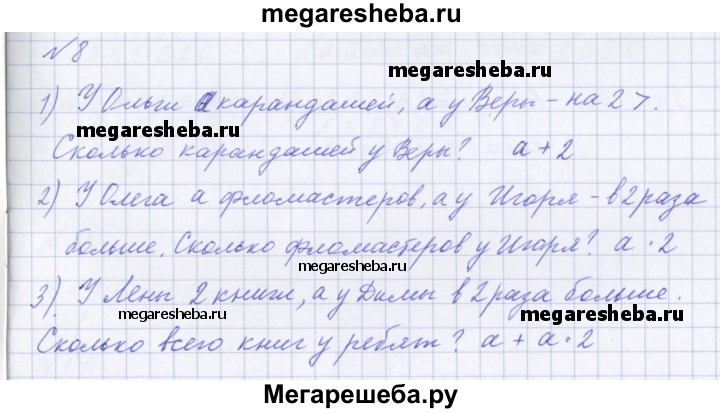 megaresheba.ru
№8
megaresheba.ru
1) У Ольги а карандашей, а у Веры - на 2 >.
megaresheba.ru
Сколько карандашей у Веры? а + 2
2) У Олега а фломастеров, а у Игоря - в 2 раза
больше. Сколько фломастеров у Игоря? а · 2
megaresheba.ru
3) У Лены 2 книги, а у Димы в 2 раза больше.
megaresheba.ru megaresheba.ru
Сколько всего книг у ребят? а + а · 2
Мегарешеба.ру